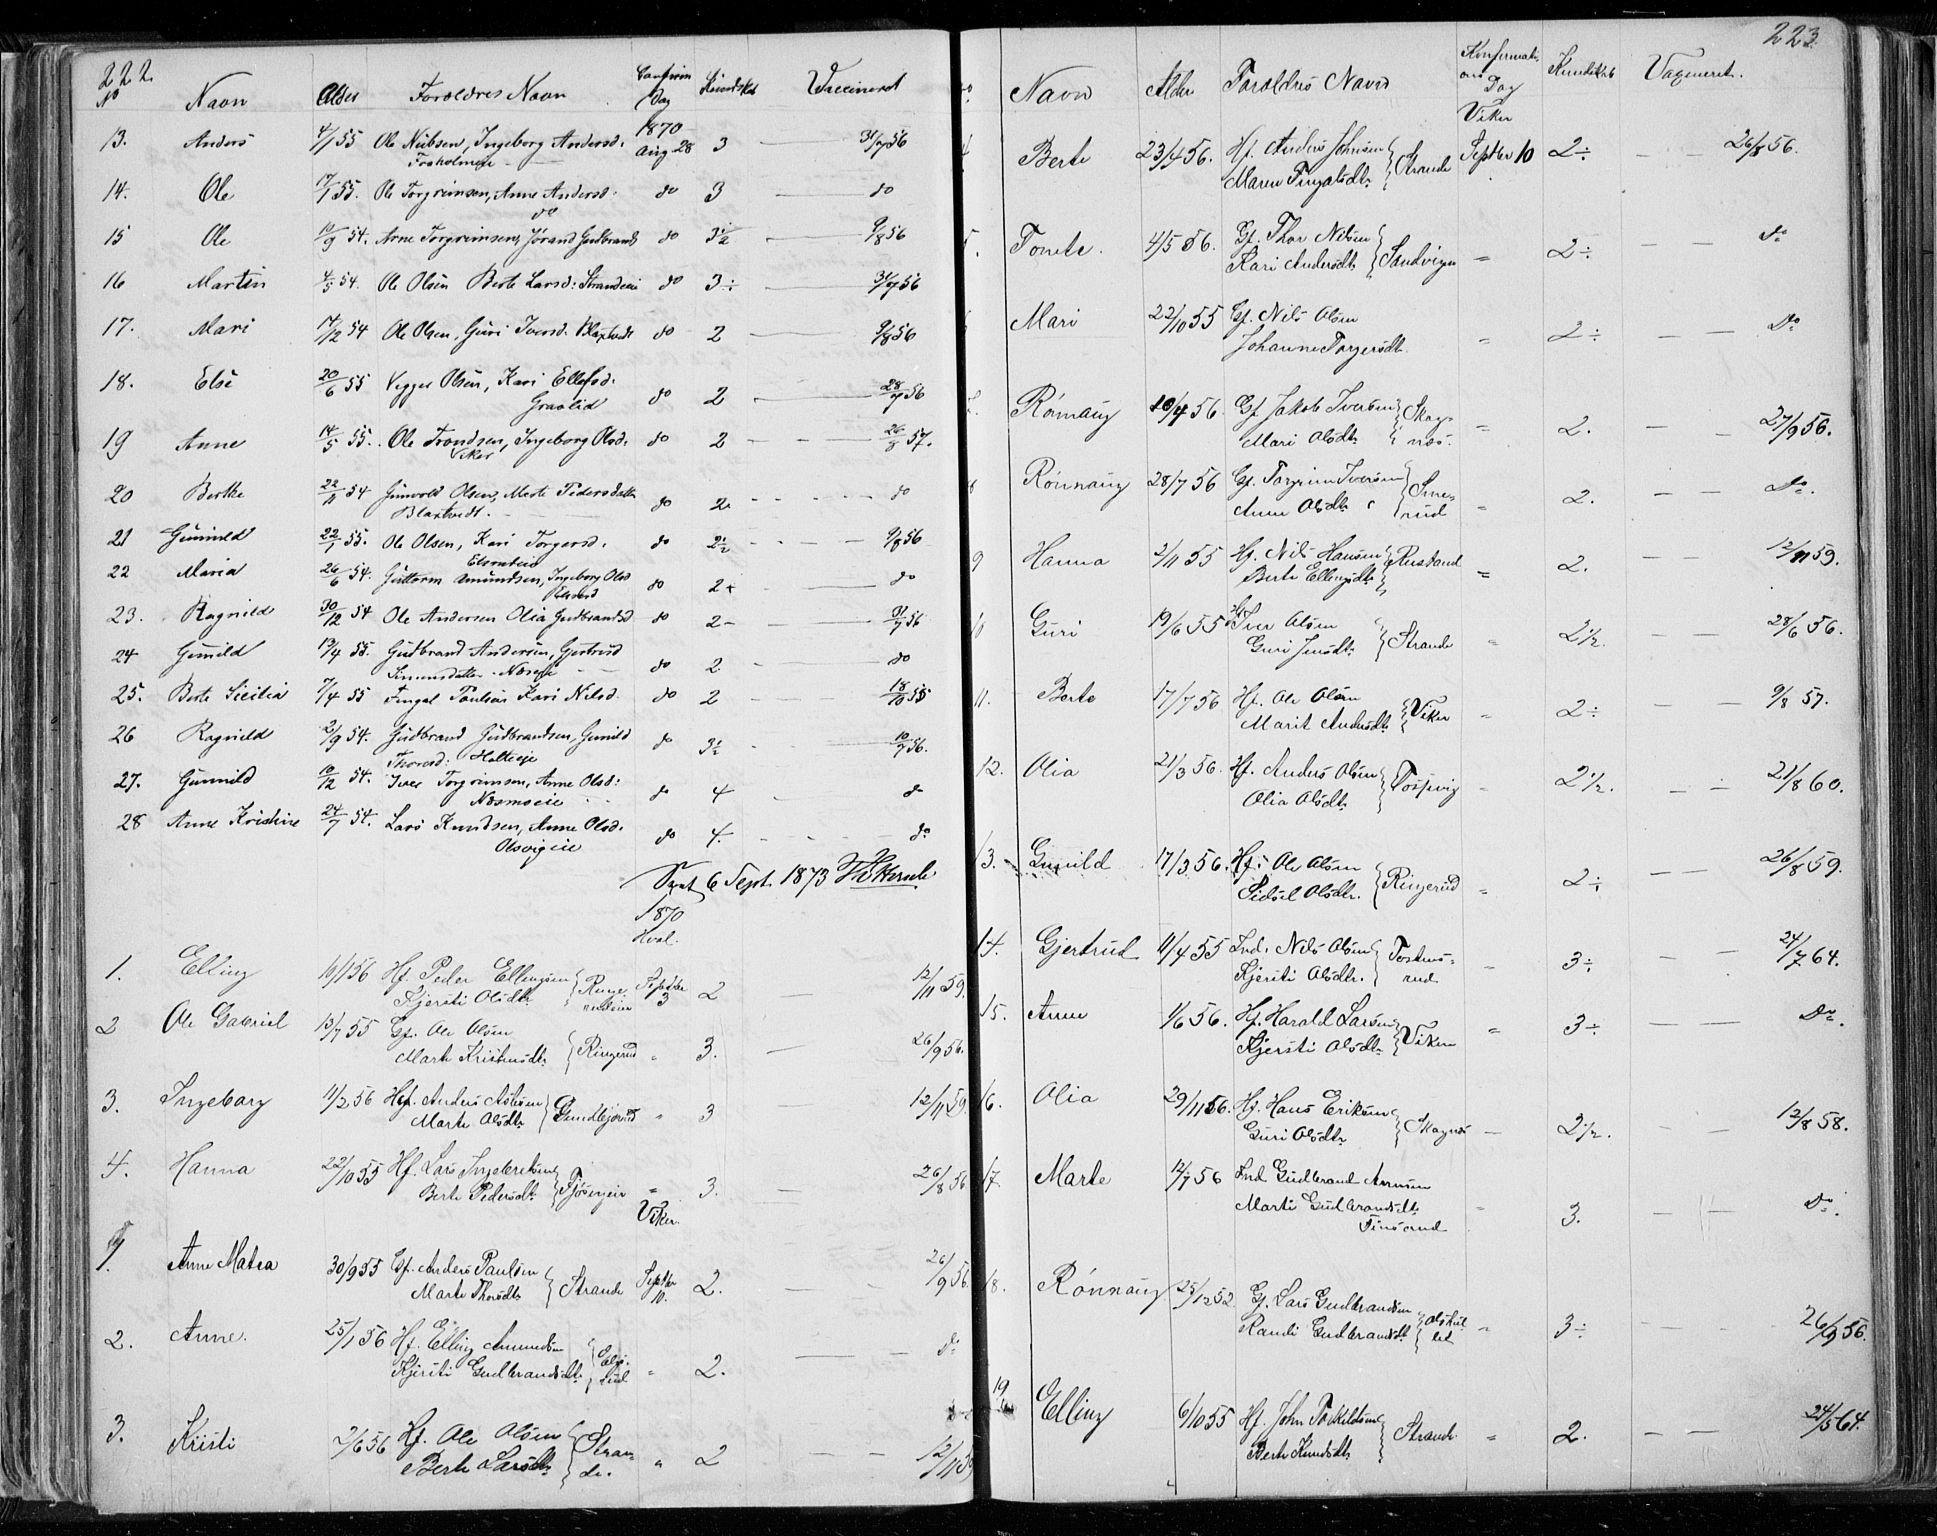 222.
No Navn Alder Foreldres Navn Confirm Dag Kundskab Vaccineret
1870
13. Anders 4/1 55 Ole Nubsen, Ingeborg Andersd: Aug. 28 3 — 31/7 56
14. Ole 17/1 55. Ole Torgrimsen, Anne Andersd: do 3 — do
do
15 Ole 19/9 54. Arne Torgrimsen, Jørand Gudbrands do 3½ — 9/8 56
16 Martin 4/5 54. Ole Olsen Berte Larsd: Strandeie do 3÷ — 31/7 56
17. Mari 17/12 54 Ole Olsen, Guri Iversd. do 2 — 9/8 56
18. Else 20/6 55 Vegger Olsen, Kari Ellefsd: do 2 — 28/7 56
Graolid
19 Anne 14/5 55. Ole Trondsen, Ingeborg Olsd: do 2 — 26/8 57.
Viker
20 Berthe 22/11 54 Gunvold Olsen, Marte Pedersdatter do 2 — do
21 Gunnild 22/1 55. Ole Olsen, Kari Torgersd. do 2½ — 9/8 56
22 Maria 26/6 54. Guttorm Amundsen, Ingeborg Olsd do 2+ — do
23. Ragnild 30/12 54 Ole Andersen Olia Gudbrandsd do 2— — 31/7 56
24 Gunild 13/4 55. Gudbrand Andersen, Gjertrud do 2 — do
Simensdatter
25. Berte Sicilia 7/4 55 Fingal Paulsen Kari Nilsd. do 2 — 18/10 55
26 Ragnild 2/9 54. Gudbrand Gudbrandsen, Gunild do 3½ — 10/7 56.
Thoresd: Holteeie
27. Gunnild 10/12 54. Iver Torgrimsen, Anne Olsd: do 4 — do
Næsmoeie
28 Anne Kristine 24/7 54. Lars Knudsen, Anne Olsd: do 4. — do
Olsvigeie
6 Sept. 1873
1870
Hval.
1. Elling 19/1 56 Hf Peder Ellingsen Septbr 3 2 — 12/11 59.
Kjersti Olsdtr
2 Ole Gabriel 13/7 55 Gf. Ole Olsen Ringerud " 3. — 26/9 56.
Marte Kristensdtr
3. Ingeborg 11/2 56 Hf. Anders Aslesen " 3 — 12/11 59.
Marte Olsdtr
4. Hanna 22/10 55 Hf. Lars Ingebretsen " 3. — 26/8 56
Berte Pedersdtr
Viker.
1. Anne Matea 30/9 55 Gf. Anders Paulsen Strande Septbr 10. 2. — 26/9 56.
Marte Thorsdtr
2. Anne. 25/1 56 Hf. Elling Amundsen " 2. — Do
Kjersti Gudbrandsdtr
3. Kristi 2/6 56 Hf. Ole Olsen Strande. " 2 — 12/11 59
Berte Larsdtr
223.
Navn Alder Foreldres Navn Konfirmations Dag Kundskab Vaxineret.
Viker
4 Berte 23/4 56. Hf. Anders Johnsen Strande Septbr 10 2÷ — 26/8 56.
Maren Fingalsdtr
5. Tomte. 4/5 56. Gf. Thor Nilsen Sandvigen " 2÷ — Do
Kari Andersdtr
Mari 22/10 55 Gf. Nils Olsen " 2÷ — Do
Johanne Torgersdtr.
Rønnaug 10/4 56. Gf. Jakob Iversen Skagnæs. " 2. — 27/9 56.
Mari Olsdtr
8 Rønnaug 28/7 56 Gf. Torgrim Iversen Smerud " 2. — Do.
Anne Olsdtr
9 Hanna 2/11 55 Hf. Nils Hansen Rustand " 2. — 12/11 59.
Berte Ellingsdtr
10 Guri 19/6 55 Hf Iver Olsen Strande " 2½. 28/6 56.
Guri Jensdtr
11. Berte 17/7 56 Hf. Ole Olsen Viker " 2÷ — 9/8 57.
Marit Andersdtr
12. Olia 21/3 56. Hf. Anders Olsen " 2½. — 21/8 60.
Olia Olsdtr
13. Gunild 17/3 56. Hf. Ole Olsen Ringerud " 2÷ — 26/8 59.
Sidsel Olsdtr.
14. Gjertrud 11/4 55 Ind. Nils Olsen " 3÷ — 24/7 64.
Kjersti Olsdtr.
15. Anne 1/6 56. Hf. Harald Larsen Viken " 3÷ — Do.
Kjersti Olsdtr
16. Olia 29/11 56. Hf. Hans Eriksen Skagnæs — 2½. — 12/8 58.
Guri Olsdtr
17 Marte 12/7 56 Ind Gudbrand Arnesen " 3. — Do.
Marte Gudbrandsdtr
18. Rønnaug 25/12 52. Gf. Lars Gudbrandsen " 3÷ — 26/9 56.
Randi Gudbrandsdtr
19 Elling 6/10 55 Hf. John Torkildsen Strande " 2. — 24/5 64.
Berte Knudsdtr